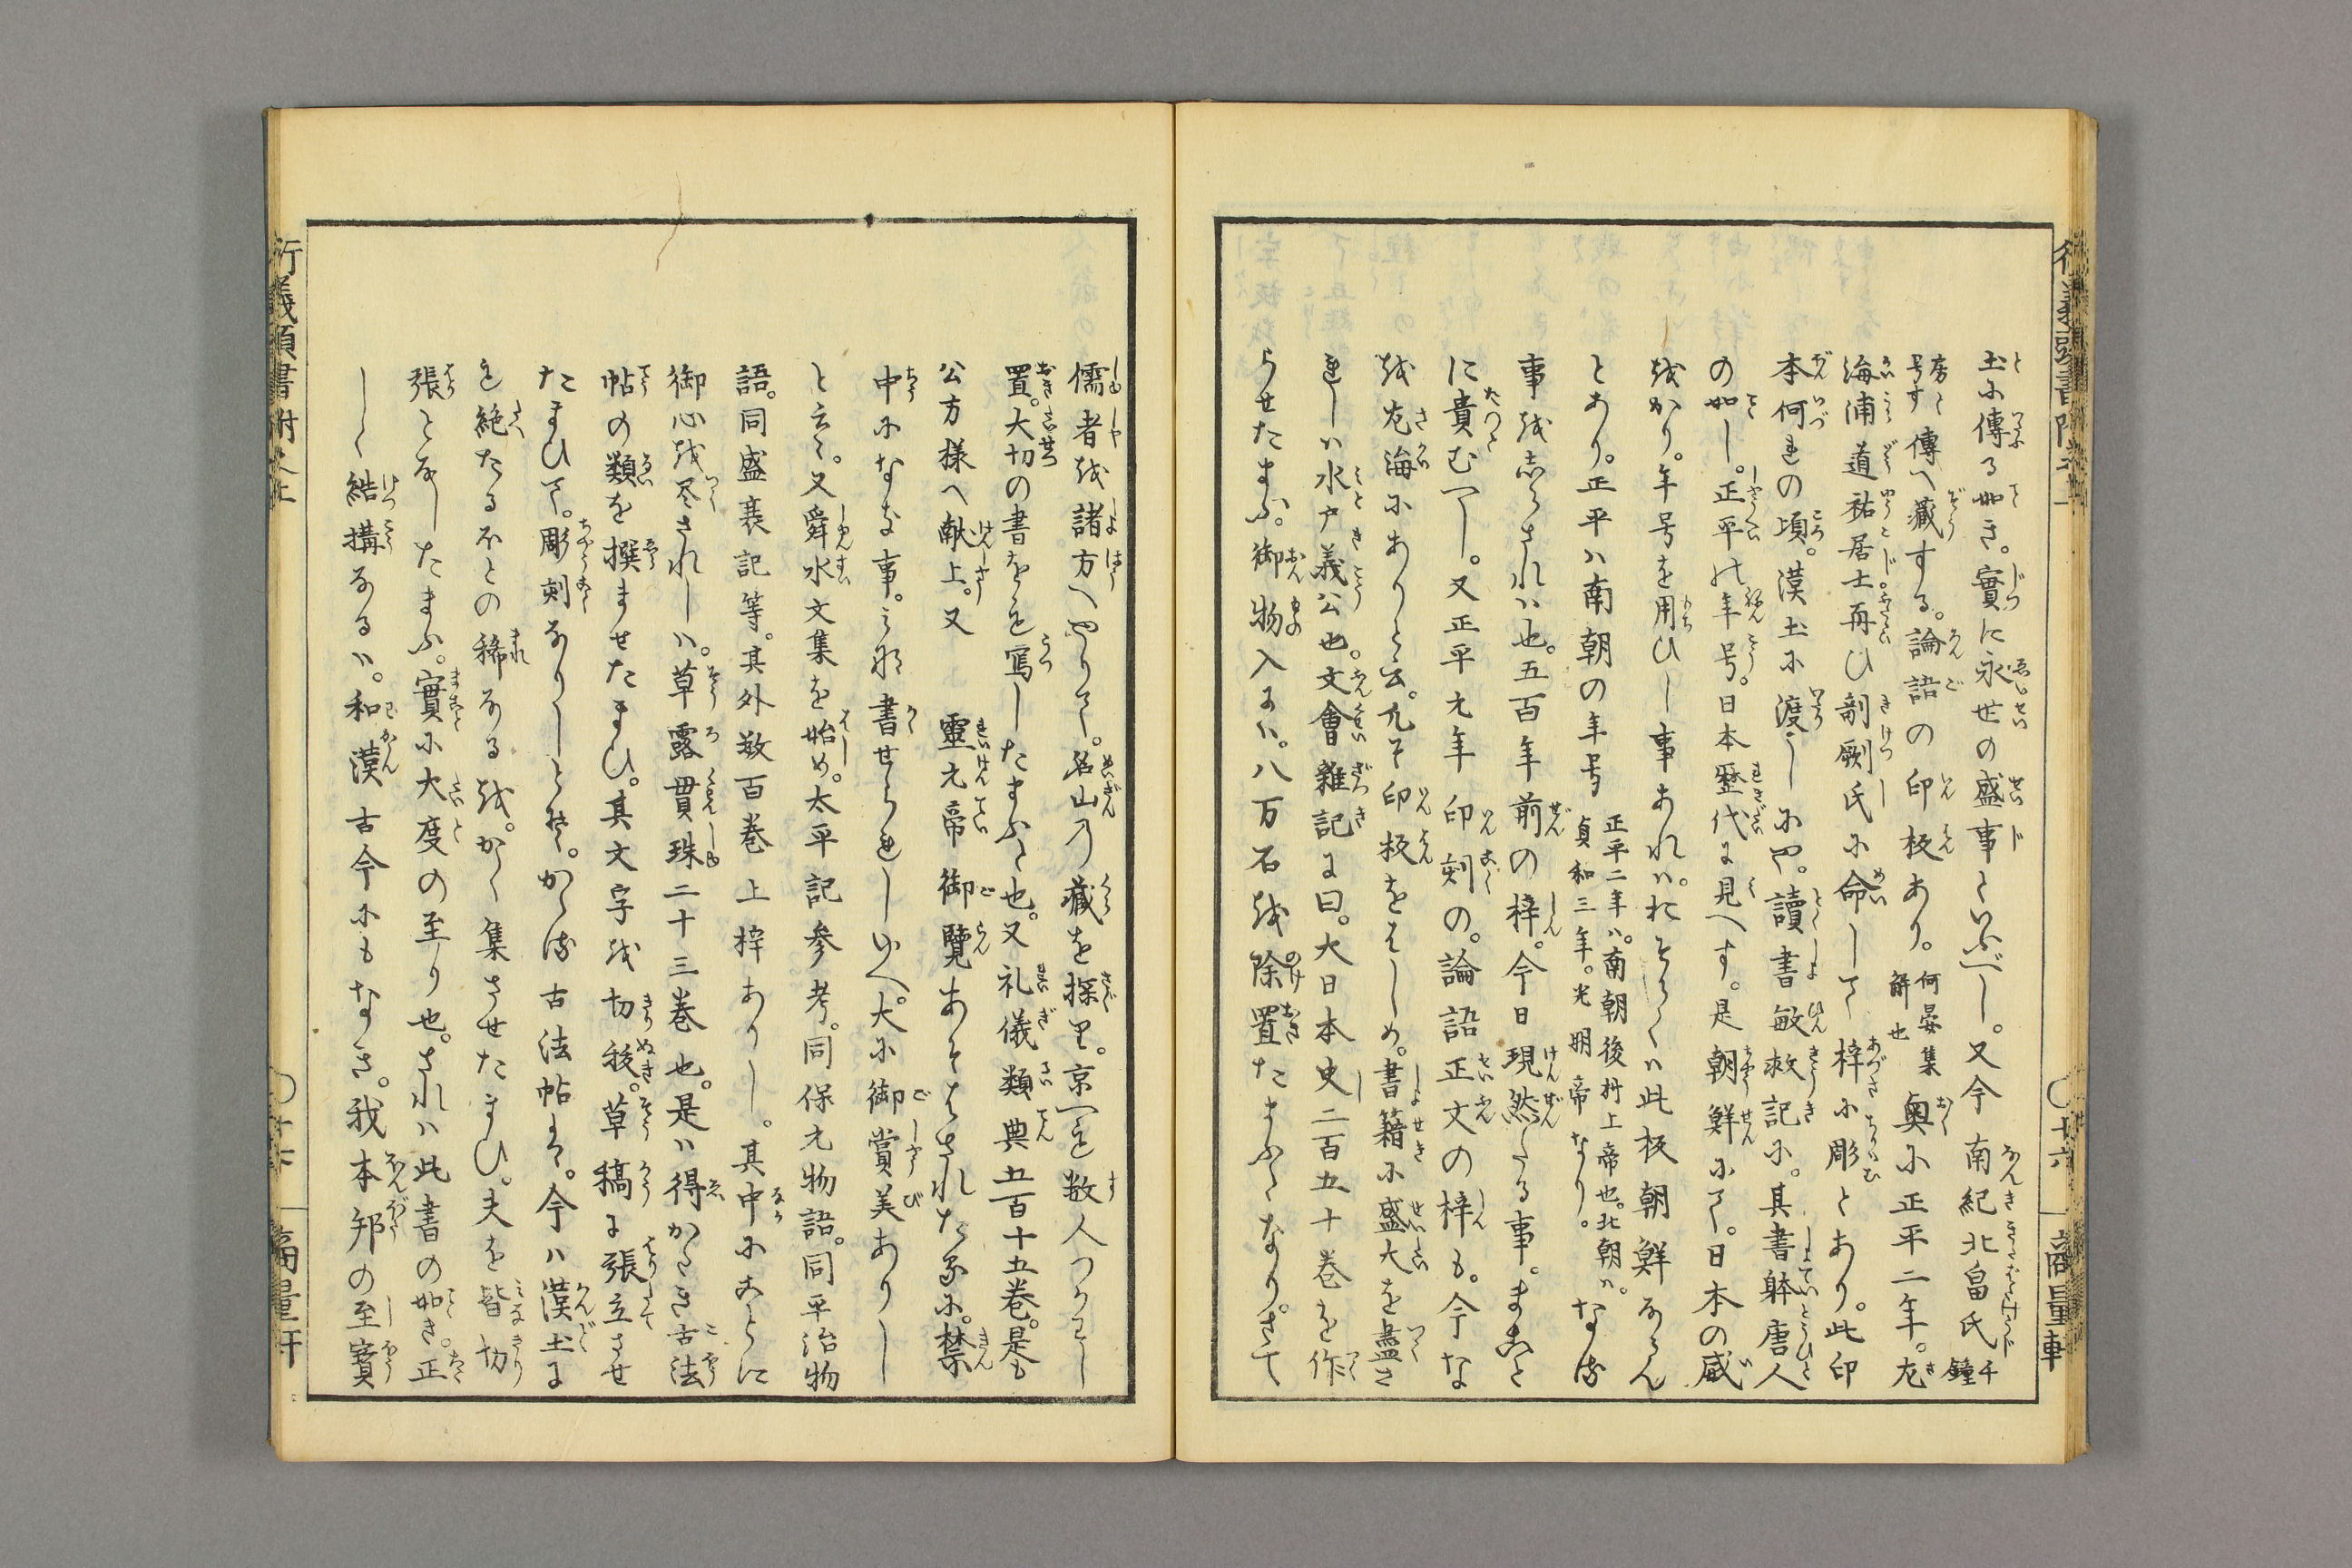 土に傳る如き。實に永世の盛事といふべし。又今 南紀北畠氏 千鐘
房と号す 傳へ藏する。論語の印板あり。何晏集解也 奥に正平二年。左
海浦道祐居士再ひ剞劂氏に命して梓に彫とあり。此印
本何れの頃。漢土に渡りしにや。讀書敏求記に。其書躰唐人
の如し。正平の年号。日本歴代に見へす。是朝鮮にて。日本の威
をかり。年号を用ひし事あれは。おそらくは此板朝鮮ならん
とあり。正平は南朝の年号 正平二年は。南朝後村上帝也。北朝は。貞和三年。光明帝なり。 なる
事をしらされは也。五百年前の梓。今日現然たる事。まこと
に貴むべし。又正平元年印刻の。論語正文の梓も。今な
を左海にありと云。凡そ印板をはしめ。書籍に盛大を盡さ
れしは水戸義公也。文會雜記に曰。大日本史二百五十巻を作
らせたまふ。御物入には。八万石を除置たまふとなり。さて
儒者を諸方へやりて。名山の藏を探り。京へも数人つかはし
置。大切の書をも寫したまふと也。又礼儀類典五百十五巻。是も
公方様へ献上。又 靈元帝御覽あそはされたるに。禁
中になき事。こま〳〵書せられしゆへ。大に御賞美ありし
と云々。又舜水文集を始め。太平記参考。同保元物語。同平治物
語。同盛衰記等。其外数百巻上梓ありし。其中にことに
御心を尽されしは。草露貫珠二十三巻也。是は得かたき古法
帖の類を撰ませたまひ。其文字を切抜。草稿に張立させ
たまひて。彫刻なりしとそ。かゝる古法帖まて。今は漢土に
も絶たるほとの稀なるを。かく集させたまひ。夫を皆切
張となしたまふ。實に大度の至り也。されは此書の如き。正
しく結構なるは。和漢古今にもなき。我本邦の至寳
行義頭書附之上
〇十六
商量軒